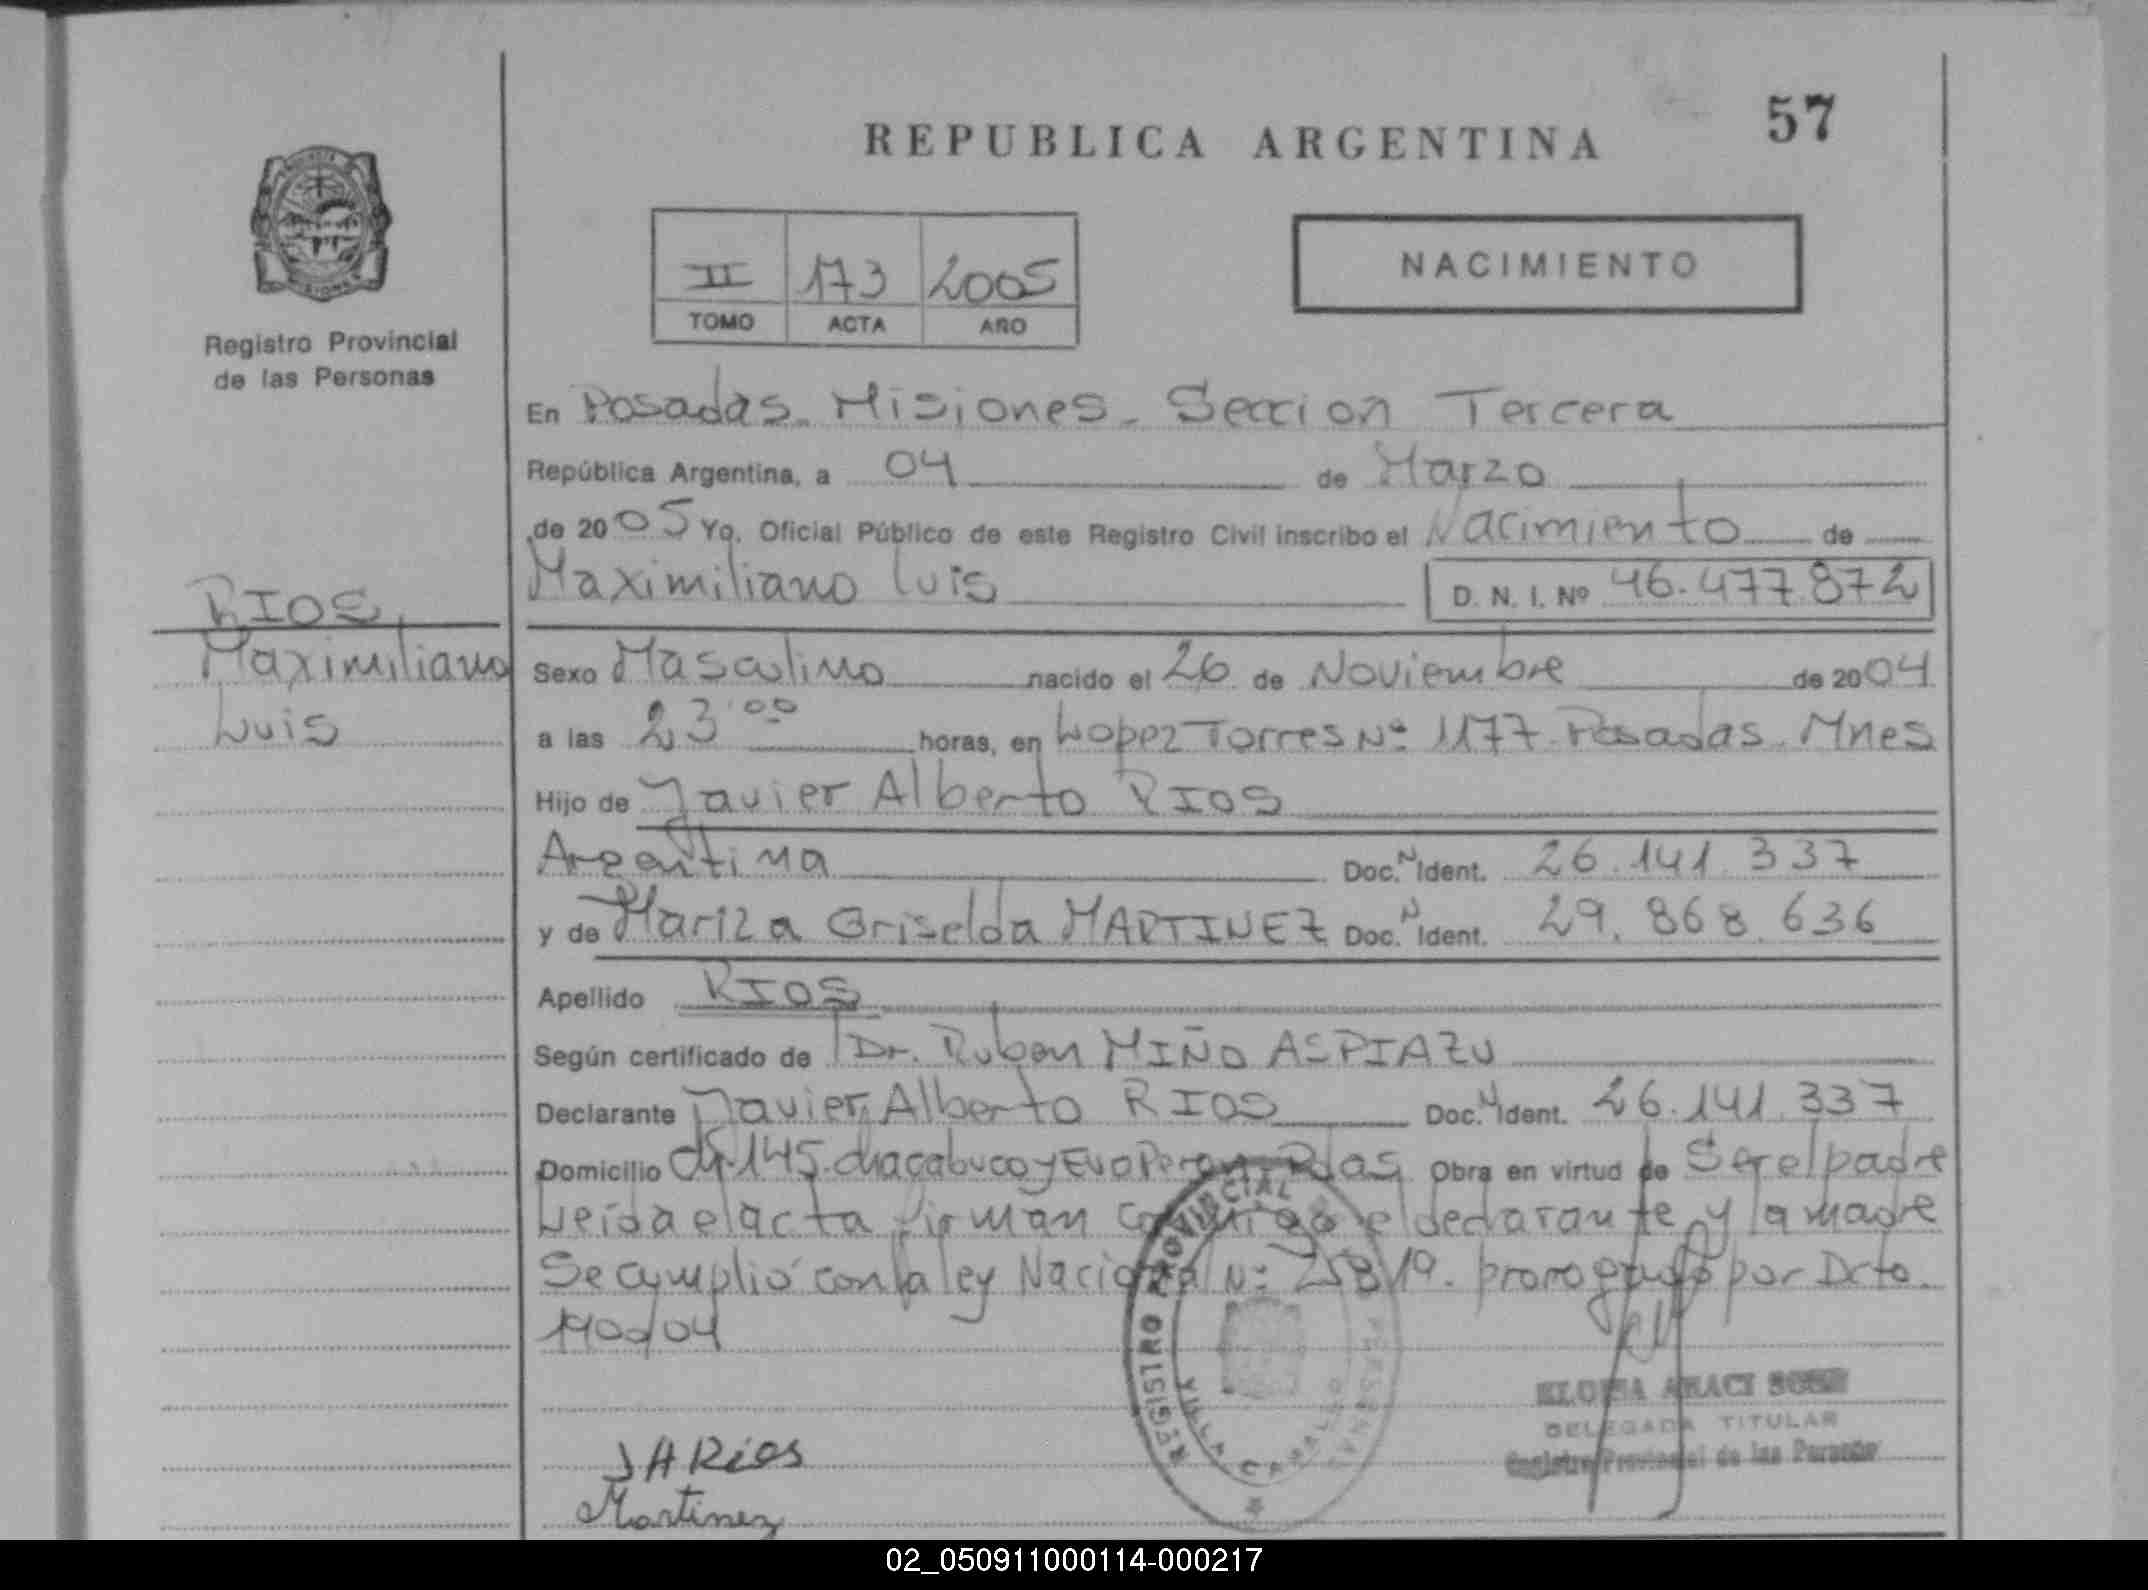 57
REPUBLICA ARGENTINA
II 173 2005
TOMO ACTA AÑO
NACIMIENTO
Registro Provincial
de las Personas
En Posadas - Misiones - Seccion Tercera
República Argentina, a 04 de Marzo
de 2005 Yo, Oficial Público de este Registro Civil inscribo el Nacimiento de
Maximiliano Luis D. N. I. Nº 46.477.872
RIOS,
Maximiliano
Luis
Sexo Masculino nacido el 26 de Noviembre de 2004
a las 23 00 horas, en Lopez Torres Nº 1177 - Posadas - Mnes
Hijo de Javier Alberto RIOS
Argentina Doc. N Ident. 26.141.337
y de Mariza Griselda MARTINEZ Doc. N Ident. 29.868.636
Apellido RIOS
Según certificado de Dr. Ruben MIÑO ASPIAZU
Declarante Javier Alberto RIOS Doc. N Ident. 26.141.337
Domicilio 145. chacabuco y Eva Peron. Pdas Obra en virtud de Ser el padre
Leida el acta firman conmigo el declarante y la madre
Se cumplió con la ley Nacional Nº 25819. prorogado por Dcto.
190/04
REGISTRO PROVINCIAL PERSONAS
VILLA CABALLO
ARACI
DELEGADA TITULAR
Registro Provincial de las Personas
JARios
Martinez
02_050911000114-000217